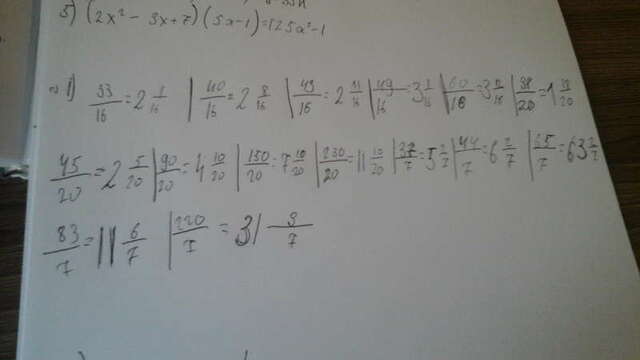 5) (2x² - 3x + 7) (5x - 1) = 125x² - 1
1) 33/16 = 2 1/16 | 40/16 = 2 8/16 | 43/16 = 2 11/16 | 49/16 = 3 1/16 | 60/16 = 3 12/16 | 38/20 = 1 18/20
45/20 = 2 5/20 | 90/20 = 4 10/20 | 150/20 = 7 10/20 | 230/20 = 11 10/20 | 37/7 = 5 2/7 | 44/7 = 6 2/7 | /7 = 63 /7
83/7 = 11 6/7 | 220/7 = 31 3/7